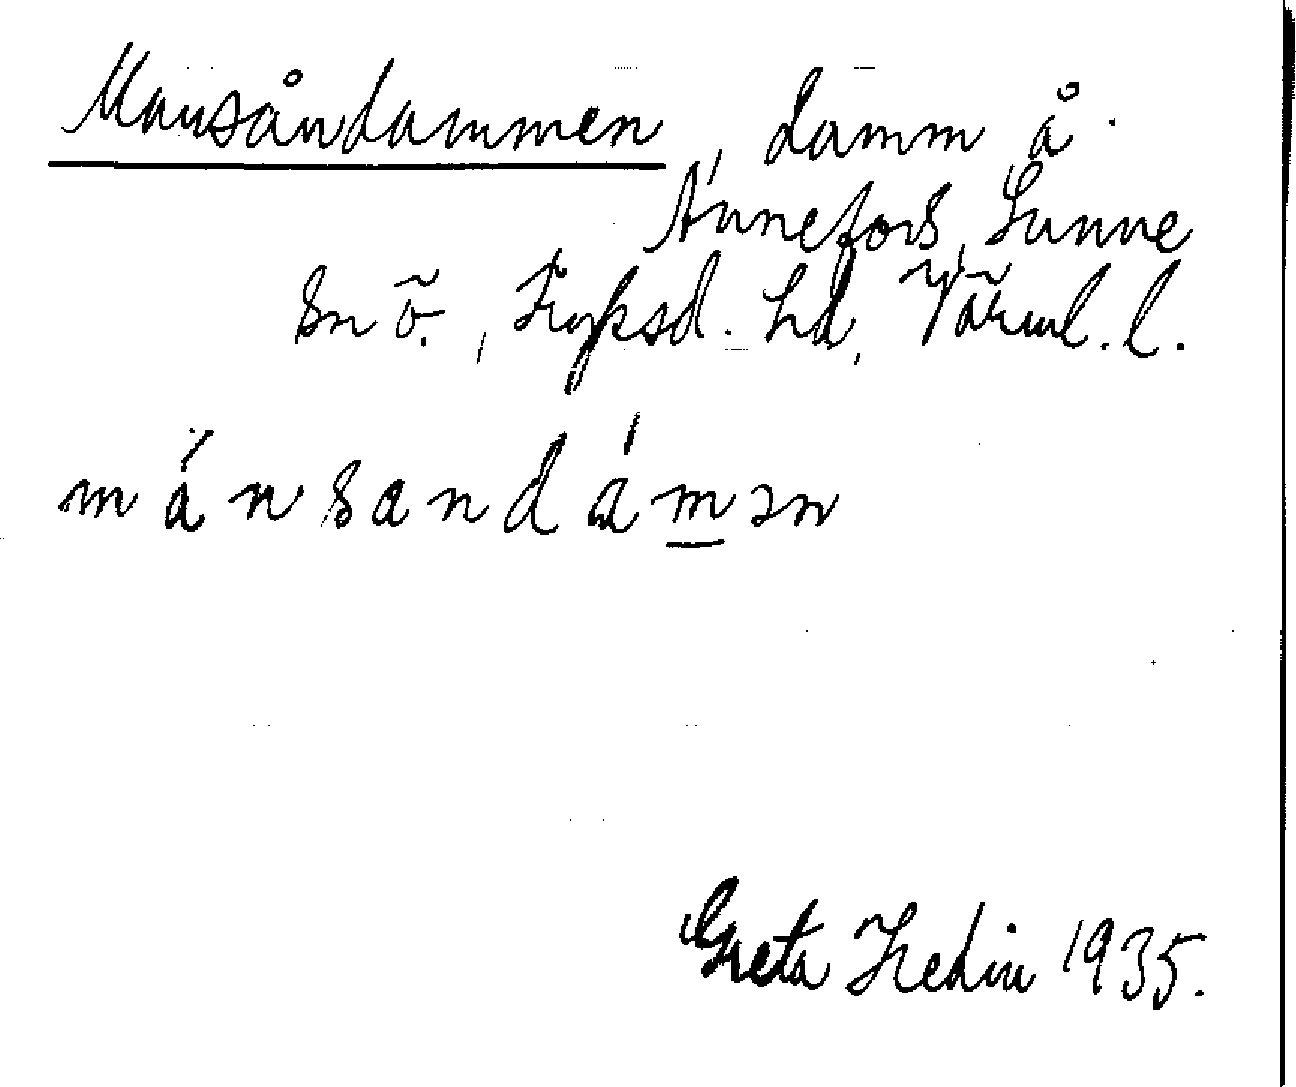 Mansåndammen, damm å
Annefors, Sunne
sn ö., Fryksd. hd, Värml. l.
mánsandámən
Greta Hedin 1935.